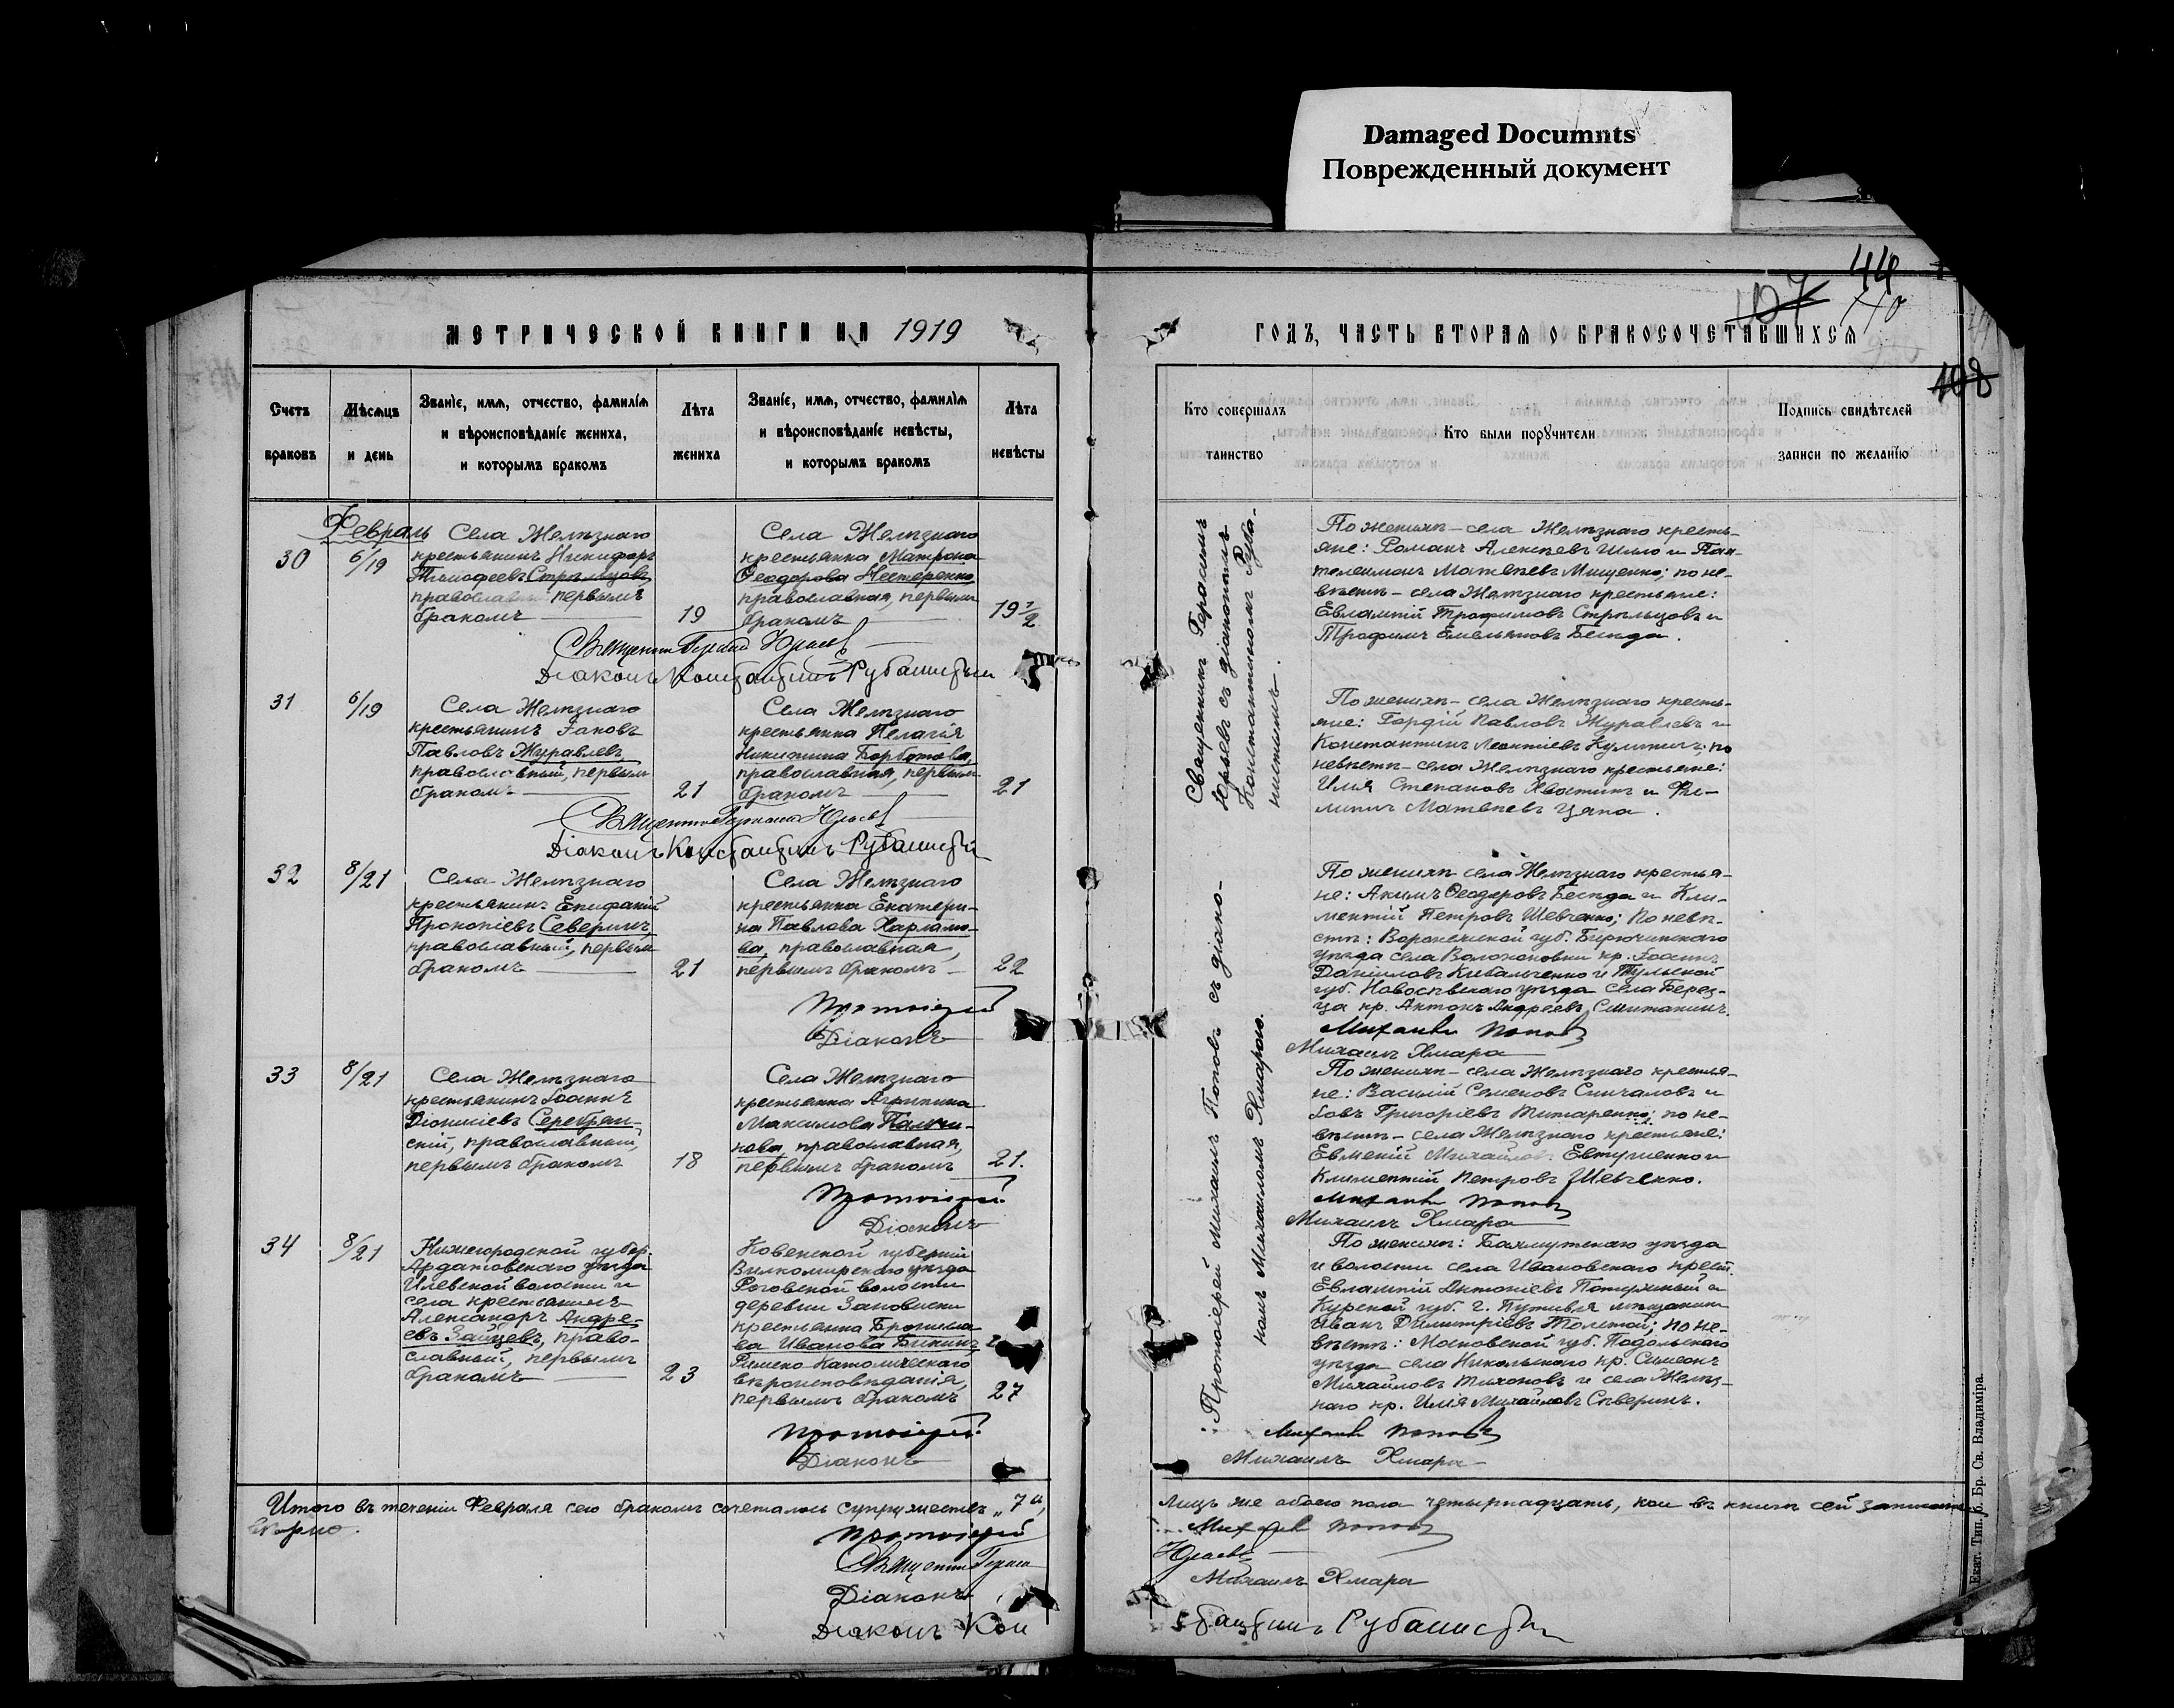 Damaged Documnts
Поврежденный документ
44
107
110
108
МЕТРИЧЕСКОЙ КНИГИ НА 1919
ГОДЪ, ЧАСТЬ ВТОРАЯ О БРАКОСОЧЕТАВШИХСЯ
Счетъ
браковъ
Мѣсяцъ
и день
Званіе, имя, отчество, фамилія
и вѣроисповѣданіе жениха,
и которымъ бракомъ
Лѣта
жениха
Званіе, имя, отчество, фамилія
и вѣроисповѣданіе невѣсты,
и которымъ бракомъ
Лѣта
невѣсты
Кто совершалъ
таинство
Кто были поручители
Подпись свидѣтелей
записи по желанію
Февраль
30
6/19
Села Желѣзнаго
крестьянинъ Никифоръ
Тимофеевъ Стрѣльцовъ,
православный первымъ
бракомъ
19
Села Желѣзнаго
крестьянка Матрона
Ѳеодорова Нестеренко,
православная, первымъ
бракомъ
19 1/2
Священникъ Герасимъ Юрьевъ
Діаконъ Константинъ Рубанистый
По женихѣ – села Желѣзнаго кресть-
яне: Романъ Алексѣевъ Шило и Пан-
телеимонъ Матвѣевъ Мищенко; по не-
вѣстѣ – села Желѣзнаго крестьяне:
Евлампій Трофимовъ Стрѣльцовъ и
Трофимъ Емельяновъ Бесѣда.
31
6/19
Села Желѣзнаго
крестьянинъ Іаковъ
Павловъ Журавлевъ,
православный, первымъ
бракомъ
21
Села Желѣзнаго
крестьянка Пелагія
Никитина Борботова,
православная, первымъ
бракомъ
21
Священникъ Герасимъ Юрьевъ
Діаконъ Константинъ Рубанистый
По женихѣ – села Желѣзнаго кресть-
яне: Гордій Павловъ Журавлевъ и
Константинъ Леонтіевъ Кулиничъ; по
невѣстѣ – села Желѣзнаго крестьяне:
Илія Степановъ Хвостикъ и Фи-
липпъ Матвѣевъ Цяпа.
Священникъ Герасимъ
Юрьевъ съ діакономъ
Константиномъ Руба-
нистымъ.
32
8/21
Села Желѣзнаго
крестьянинъ Епифаній
Прокопіевъ Северинъ,
православный, первымъ
бракомъ
21
Села Желѣзнаго
крестьянка Екатери-
на Павлова Харламо-
ва, православная,
первымъ бракомъ
22
Протоіерей
Діаконъ
По женихѣ села Желѣзнаго крестья-
не: Акимъ Ѳеодоровъ Бесѣда и Кли-
ментій Петровъ Шевченко; по невѣ-
стѣ: Воронежской губ. Бирючинскаго
уѣзда села Волоконовки кр. Іоаннъ
Даніиловъ Кибальченко и Тульской
губ. Новосильскаго уѣзда села Берез-
ца кр. Антонъ Андреевъ
Михаилъ Поповъ
Михаилъ Хмара
33
8/21
Села Желѣзнаго
крестьянинъ Іоаннъ
Діонисіевъ Серебрян-
скій, православный,
первымъ бракомъ
18
Села Желѣзнаго
крестьянка Агрипина
Максимова
нова, православная,
первымъ бракомъ
21.
Протоіерей
Діаконъ
По женихѣ – села Желѣзнаго крестья-
не: Василій Семеновъ и
Іовъ Григоріевъ Титаренко; по не-
вѣстѣ – села Желѣзнаго крестьяне:
Евменій Михайловъ Евтушенко и
Климентій Петровъ Шевченко.
Михаилъ Поповъ
Михаилъ Хмара
34
8/21
Нижегородской губер.
Ардатовскаго уѣзда
Илевской волости и
села крестьянинъ
Александръ Андре-
евъ Зайцевъ, право-
славный, первымъ
бракомъ
23
Ковенской губерніи
Вилкомирскаго уѣзда
Роговской волости
деревни
крестьянка Бронисла-
ва Иванова
Римско-Католическаго
вѣроисповѣданія,
первымъ бракомъ
27
Протоіерей
Діаконъ
По женихѣ: Бахмутскаго уѣзда
и волости села Ивановскаго крест.
Евлампій Антоніевъ и
Курской губ. г. Путивля мѣщанинъ
Иванъ Димитріевъ Толстой; по не-
вѣстѣ: Московской губ. Подольскаго
уѣзда села Никольскаго кр. Симеонъ
Михайловъ Тихоновъ и села Желѣз-
наго кр. Илія Михайловъ Сѣверинъ.
Михаилъ Поповъ
Михаилъ Хмара
Протоіерей Михаилъ Поповъ съ діако-
номъ Михаиломъ Хмарою.
Итого въ теченіи Февраля сего бракомъ сочеталось супружествъ „7“,
лицъ же обоего пола четырнадцать, кои въ книгѣ сей записаны
вѣрно.
Протоіерей Михаилъ Поповъ
Священникъ Герасимъ Юрьевъ
Діаконъ Михаилъ Хмара
Діаконъ Константинъ Рубанистый
Екат. Тип. б. Бр. Св. Владиміра.